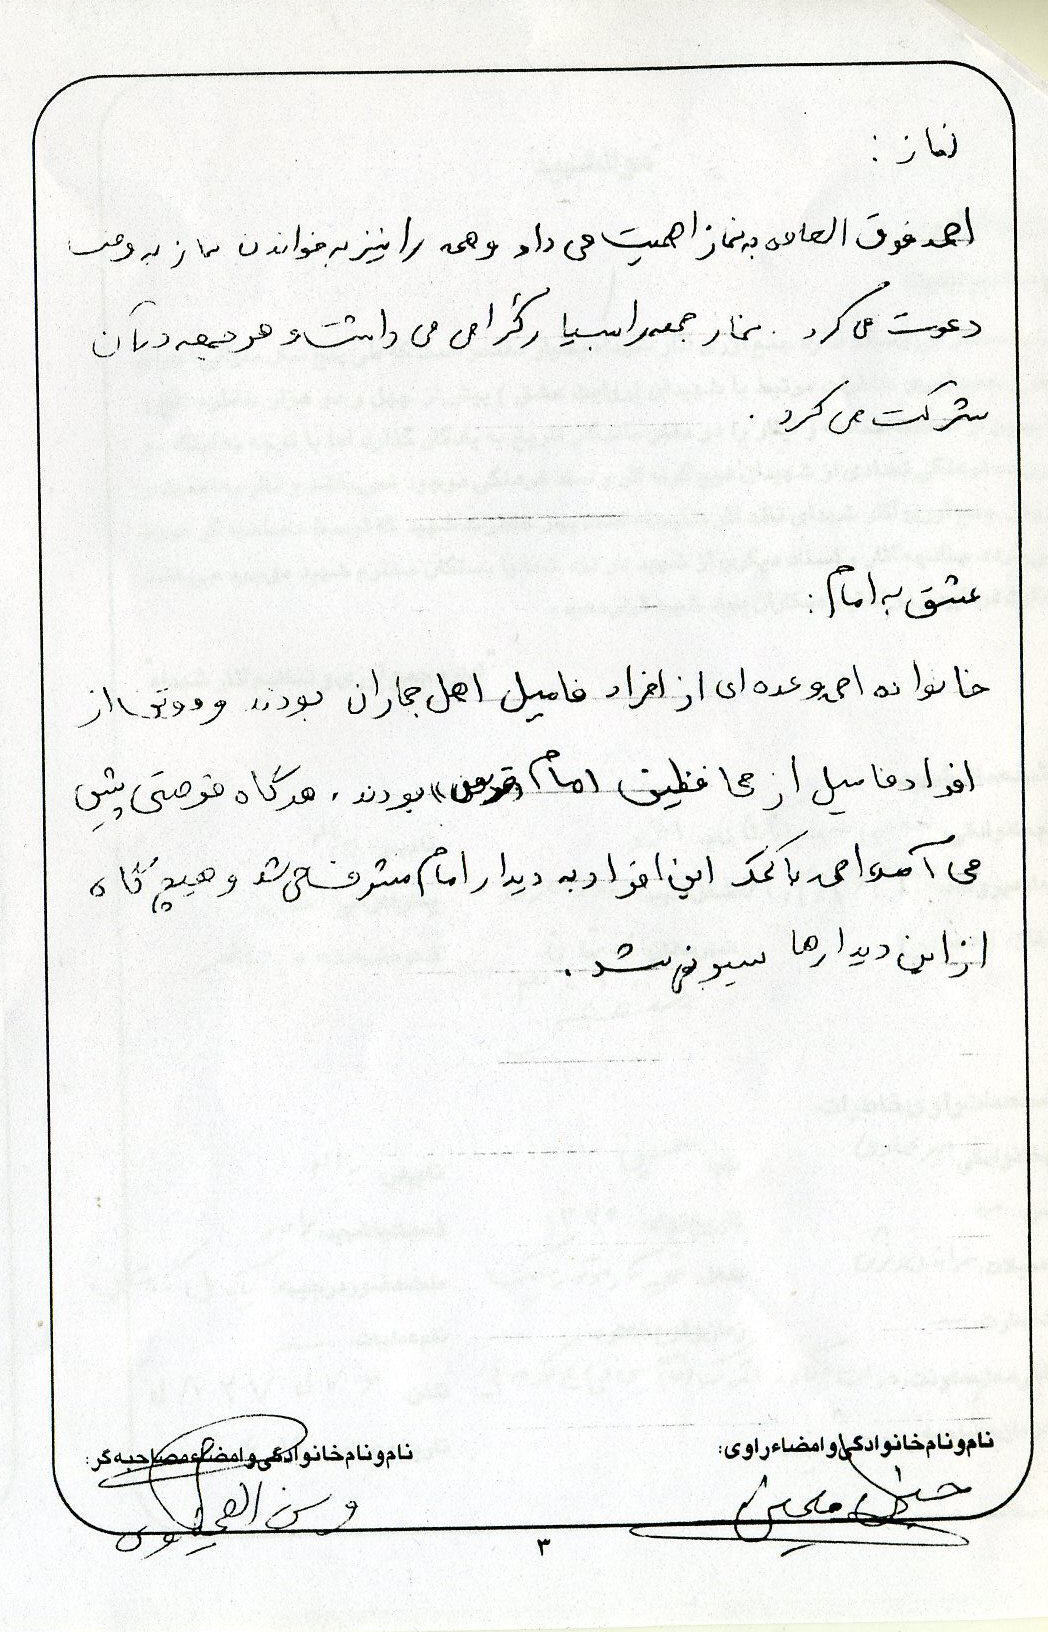 نماز :
احمد فوق العاده به نماز اهمیت می داد و همه را نیز به خواندن نماز به وقت
دعوت می کرد . نماز جمعه را بسیار گرامی می داشت و هر جمعه در آن
شرکت می کرد .
عشق به امام :
خانواده احمد و عده ای از افراد فامیل اهل جماران بودند و دو تن از
افراد فامیل از محافظین امام بودند . هرگاه فرصتی پیش
می آمد احمد با کمک این افراد به دیدار امام مشرف می شد و هیچ گاه
از این دیدارها سیر نمی شد .
نام و نام خانوادگی و امضاء راوی:
نام و نام خانوادگی و امضاء مصاحبه گر:
۳